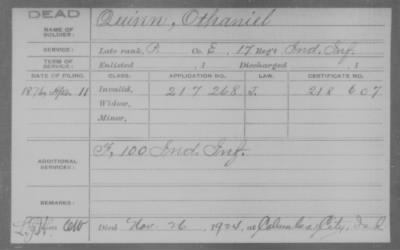 DEAD
NAME OF SOLDIER: Quinn, Othaniel
SERVICE: Late rank, P. Co. E, 17 Reg't Ind. Inf.
TERM OF SERVICE: Enlisted , 1 Discharged , 1
DATE OF FILING. CLASS. APPLICATION NO. LAW. CERTIFICATE NO.
1876, Apr. 11 Invalid, 217 268 J. 218 607
Widow,
Minor,
ADDITIONAL SERVICES: F, 100 Ind. Inf.
REMARKS:
Died Nov. 26, 1924, at Columbia City, Ind